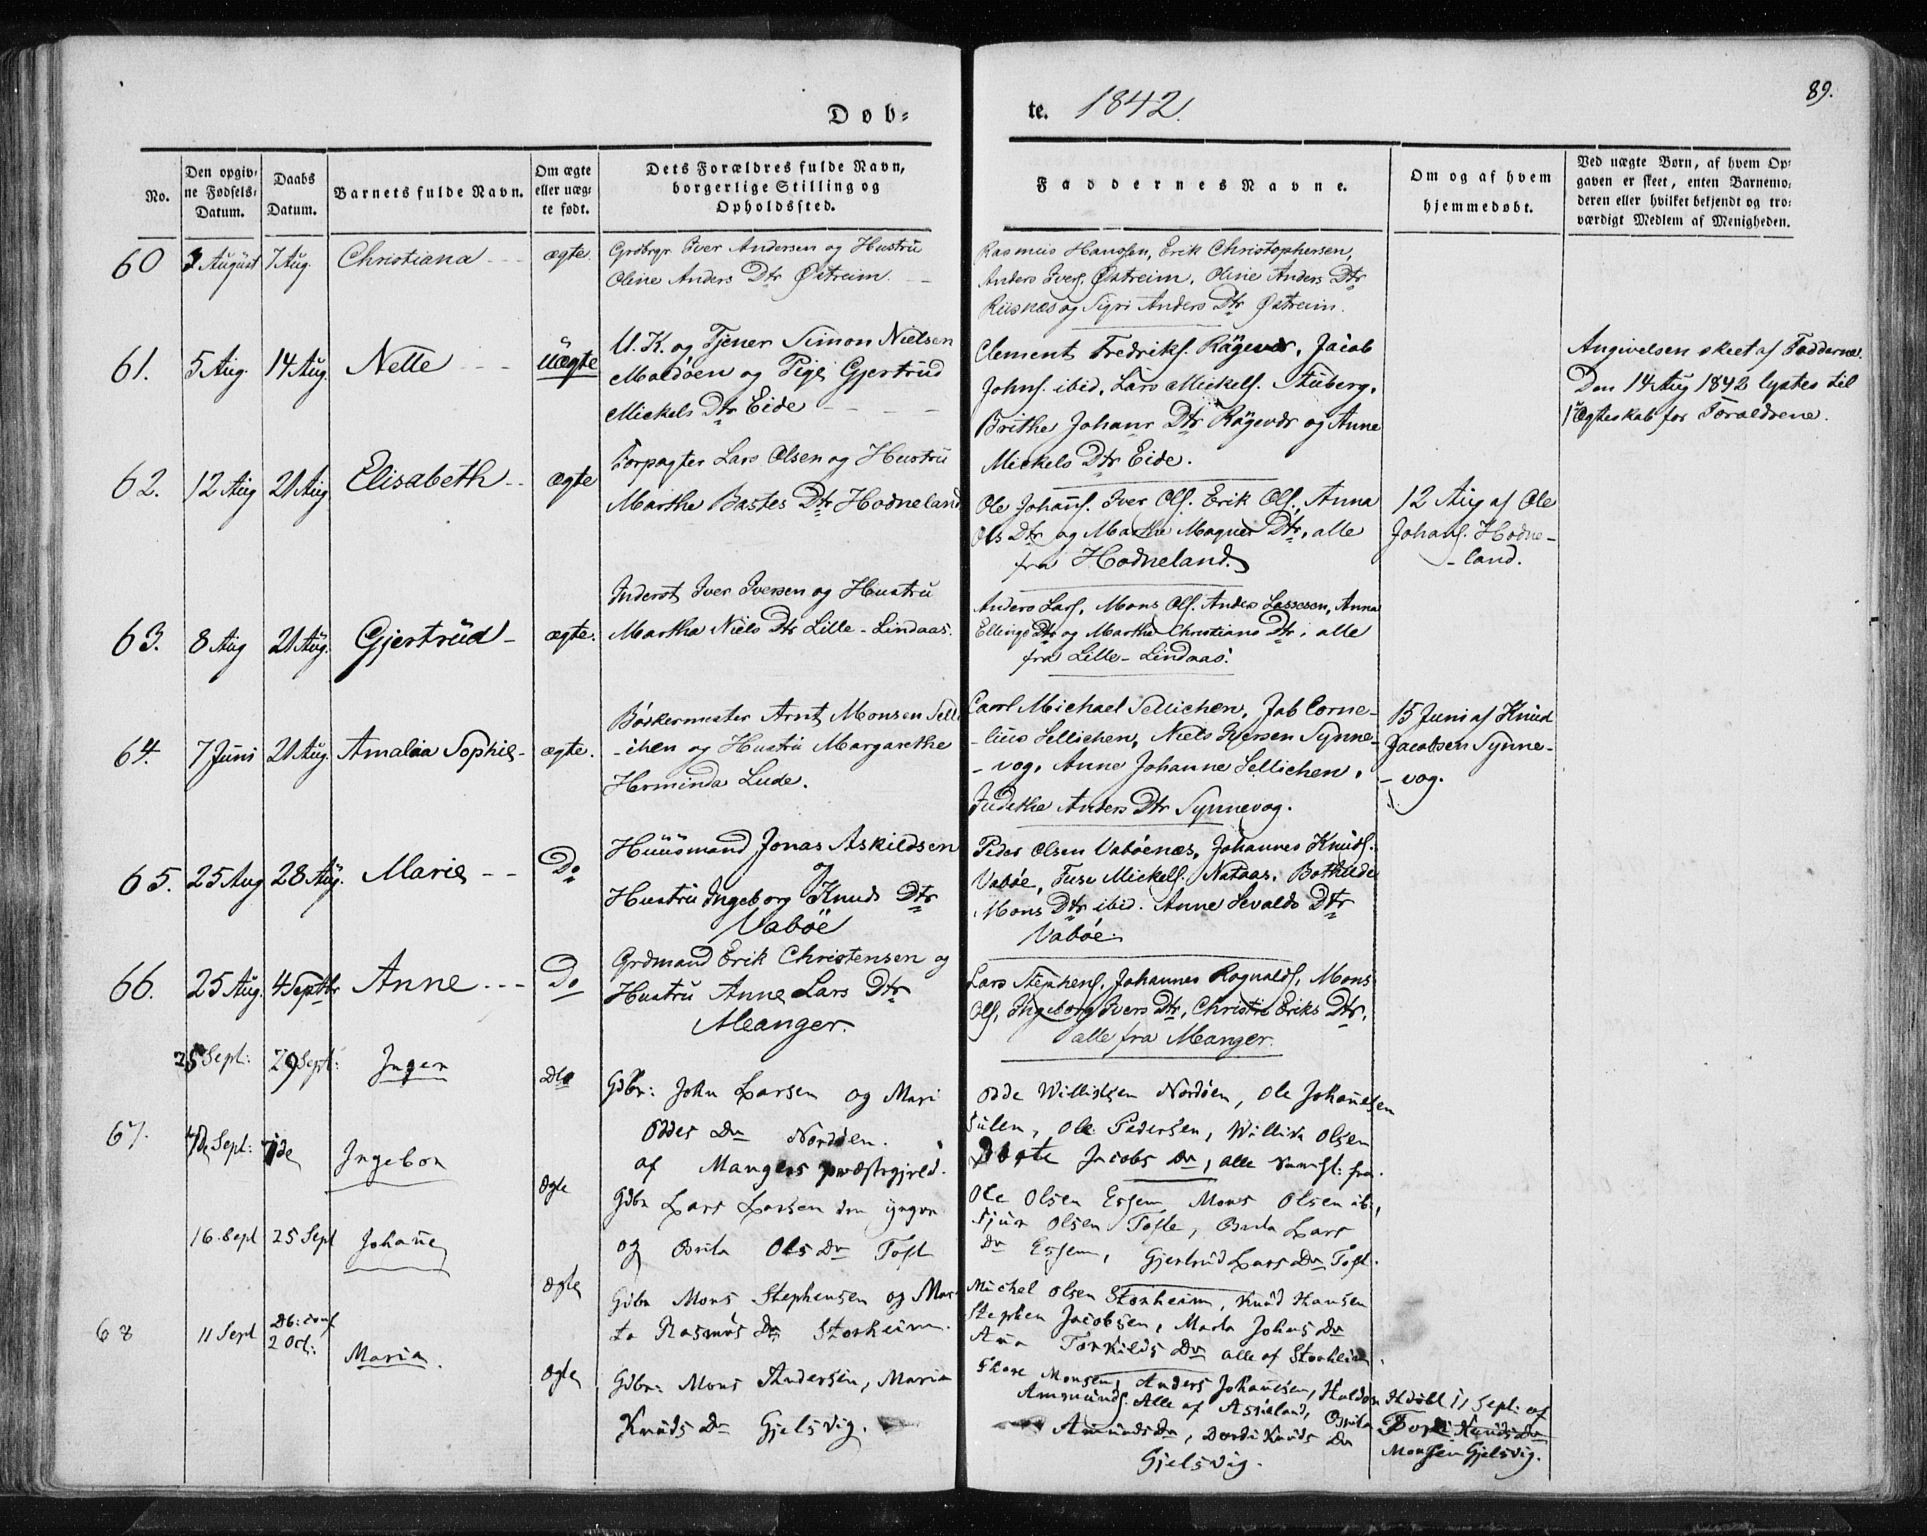 89.
Døb-
te. 1842.
No.
Den opgiv-
ne Fødsels-
Datum.
Daabs
Datum.
Barnets fulde Navn.
Om ægte
eller uæg-
te født.
Dets Forældres fulde Navn,
borgerlige Stilling og
Opholdssted.
Faddernes Navne.
Om og af hvem
hjemmedøbt.
Ved uægte Børn, af hvem Op-
gaven er skeet, enten Barnemo-
deren eller hvilket bekjendt og tro-
værdigt Medlem af Menigheden.
60 August 7 Aug. Christiana ægte.
Grdbrgr Iver Andersen og Hustru
Oline Anders Dtr Østreim.
Rasmus Hanssen, Erik Christophersen,
Anders Ivers. Østreim, Oline Anders Dtr
Riisnæs og Sigri Anders Dtr Østreim.
61. 5 Aug. 14 Aug. Nette uægte
U. K. og Tjener Simon Nielsen
Maldøen og Pige Gjertrud
Mickels Dtr Eide
Clement Fredriks. Rägevdr, Jacob
Johns. ibid, Lars Mickels. Stuberg,
Brithe Johans Dtr Rägevdr og Anne
Mickels Dtr Eide.
Angivelsen skeet af Fadderne.
Den 14 Aug 1842 lystes til
Ægteskab for Forældrene.
62. 12 Aug 21 Aug Elisabeth ægte
Forpagter Lars Olsen og Hustru
Marthe Bastes Dtr Hodneland
Ole Johans. Iver Ols. Erik Ols., Anna
Ols Dtr og Marthe Magner Dtr, alle
fra Hodneland.
12 Aug af Ole
Johans. Hodne-
-land.
63. 8 Aug 21 Aug. Gjertrud ægte.
Inderst Iver Iversen og Hustru
Martha Niels Dtr Lille-Lindaas.
Anders Lars., Mons Ols. Anders Lassesen, Anna
Ellings Dtr og Marthe Christians Dtr, alle
fra Lille-Lindaas.
64. 7 Juni 21 Aug. Amalia Sophie ægte.
Bødkermester Arnt Monsen Selli
-chen og Hustru Margarethe
Herminda Lude.
Carl Michael Sellichen, Jab Corne-
-lius Sellichen, Niels Iversen Synne-
-vog, Anne Johanne Sellichen,
Judithe Anders Dtr Synnevog.
15 Juni af Knud
Jacobsen Synne-
-vog.
65. 25 Aug 28 Aug. Marie Do
Huusmand Jonas Askildsen
Hustru Ingeborg Knuds Dtr
Vabøe
Peder Olsen Vabøenæs, Johannes Knuds.
Vabøe, Fuse Mickels. Nataas, Bothilde
Mons Dtr ibid. Anne Sevalds Dtr
Vabøe.
66. 25 Aug. 4 Septbr Anne Do
Grdmand Erik Christensen og
Hustru Anne Lars Dtr
Meanger.
Lars Stephens, Johannes Rognalds., Mons
Ols, Ingeborg Ivers Dtr, Christi Eriks Dtr,
alle fra Meanger.
25 Sept: 29 Sept: Inger Dto
Gdbr: John Larsen og Mari
Oddes Dr Nordøen.
af Mangers præstegjeld.
Odde Willissen Nordøen, Ole Johannesen
Sulen, Ole Pedersen, Willik Olsen
Dorte Jacobs Dr, alle fra.
67. Sept: Ingebor Ægte
Gdbr Lars Larsen den yngre
og Brita Ols Dr Toft
Ole Olsen Essem, Mons Olsen ib:,
Sjur Olsen Tofte, Brita Lars
Dr Essem, Gjertrud Lars Dr Toft.
16 Sept 25 Sept Johanne Ægte
Gdbr Mons Stephensen og Mar-
ta Rasmus Dr Storheim.
Michel Olsen Storheim, Knud Hansen
Stephen Jacobsen, Marta Johns Dr
Anna Torkilds Dr alle af Storheim.
68 11 Sept Db: conf
2 Oct: Maria. Ægte
Gdbr: Mons Andersen, Maria
Knuds Dr Gjelsvig.
Thore Monsen, Anders Johannesen, Haldor
Amunds. Alle af Askeland, Brita
Amunds Dr, Dordi Knuds Dr
Gjelsvig.
Hdøbt 11 Sept: af
Knuds Dr
Monsen Gjelsvig.